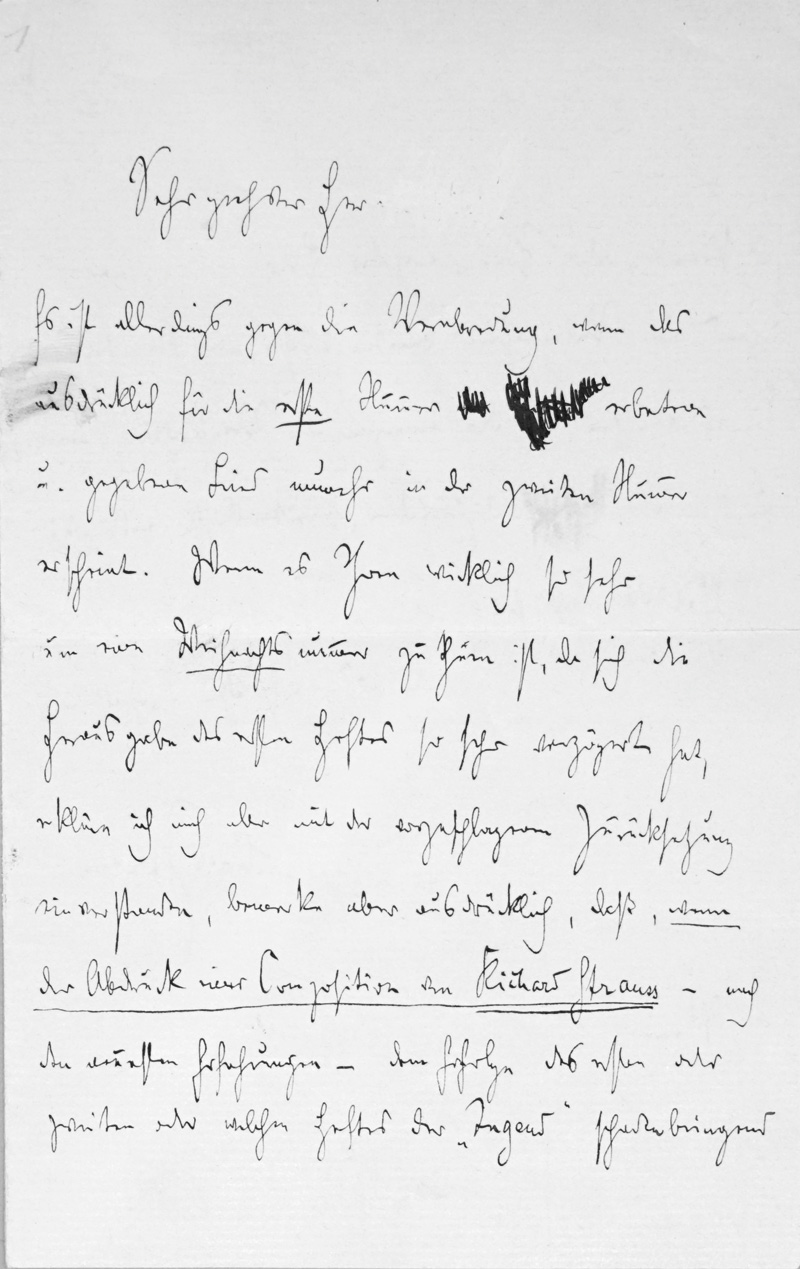 Sehr geehrter Herr.
Es ist allerdings gegen die Verabredung, wenn das
ausdrücklich für die erste Nummer erbetene
u. gegebene Lied nunmehr in der zweiten Nummer
erscheint. Wenn es Ihnen wirklich so sehr
um eine Weihnachtsnummer zu thun ist, da sich die
Herausgabe des ersten Heftes so sehr verzögert hat,
erkläre ich mich aber mit der vorgeschlagenen Zurücksetzung
einverstanden, bemerke aber ausdrücklich, daß, wenn
der Abdruck einer Composition von Richard Strauss – nach
den neuesten Erfahrungen – dem Erfolge des ersten oder
zweiten oder welchen Heftes der „Jugend“ schadenbringend